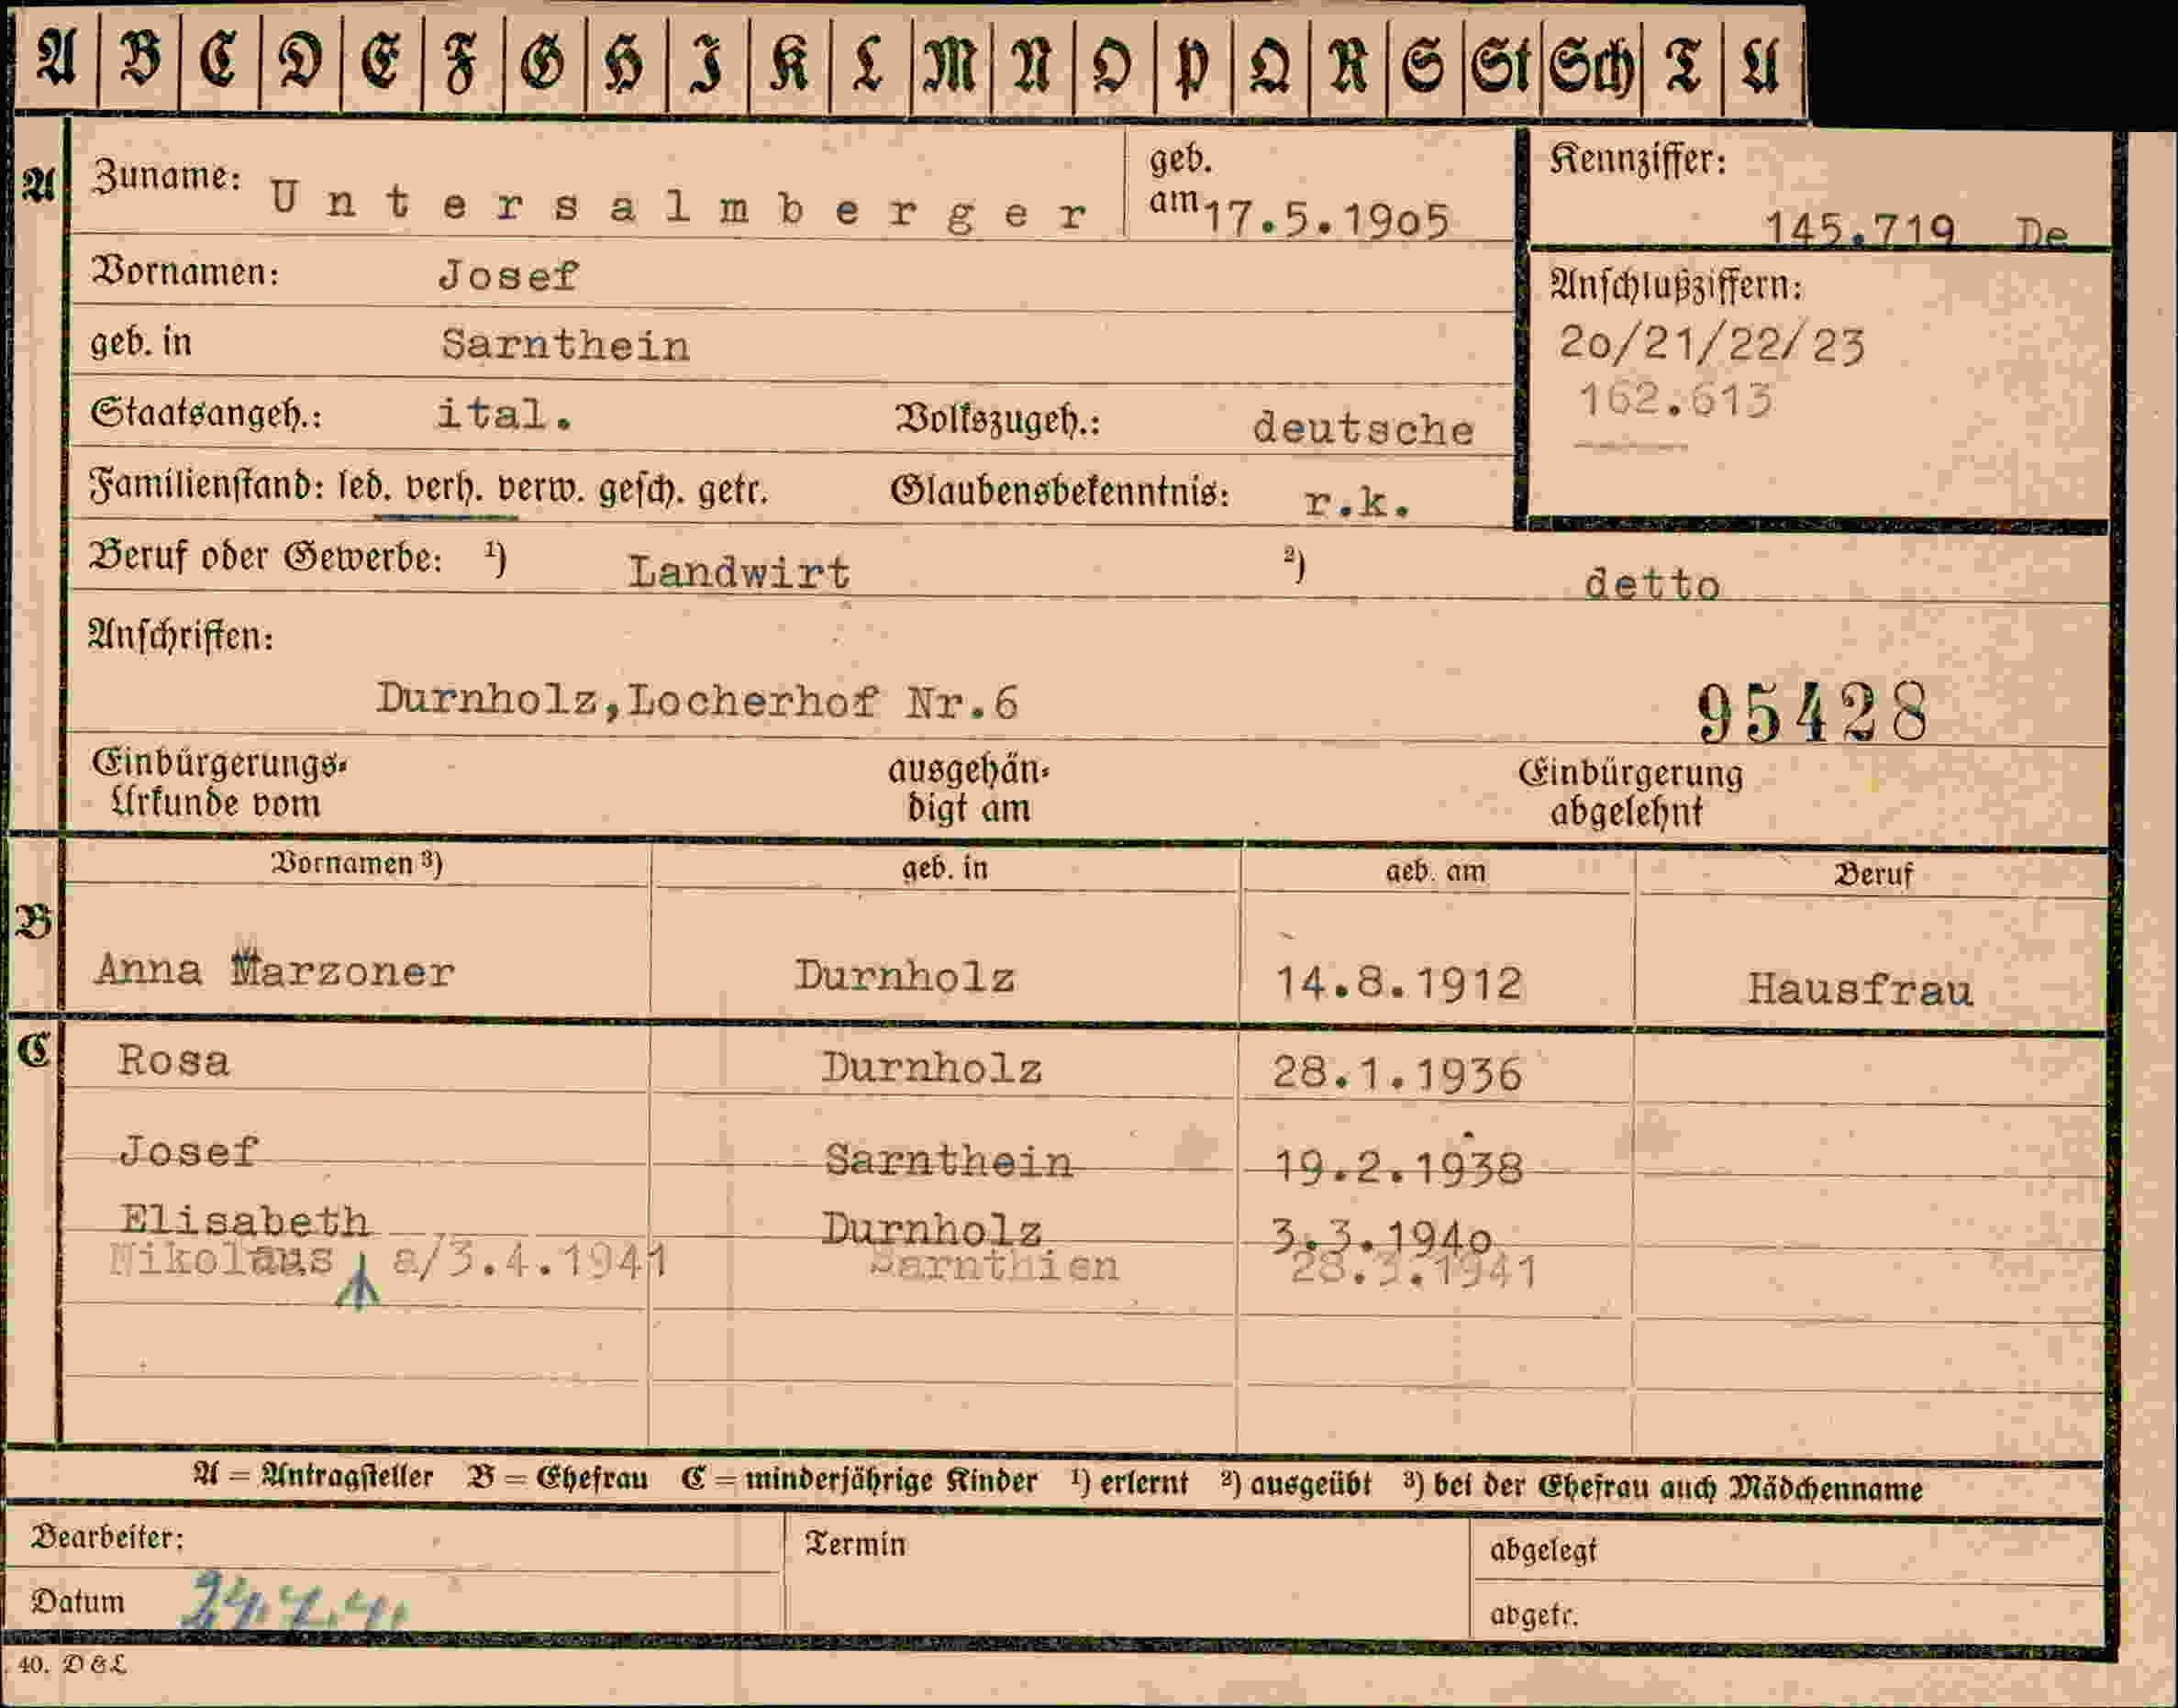 A B C D E F G H I K L M N O P Q R S St Sch T U
A
Zuname: Untersalmberger
geb. am 17.5.1905
Kennziffer:
145.719 De
Vornamen: Josef
Anschlußziffern:
20/21/22/23
162.613
geb. in Sarnthein
Staatsangeh.: ital. Volkszugeh.: deutsche
Familienstand: led. verh. verw. gesch. getr. Glaubensbekenntnis: r.k.
Beruf oder Gewerbe: 1) Landwirt 2) detto
Anschriften:
Durnholz,Locherhof Nr.6 95428
Einbürgerungs-Urkunde vom ausgehändigt am Einbürgerung abgelehnt
Vornamen 3) geb. in geb. am Beruf
B
Anna Marzoner Durnholz 14.8.1912 Hausfrau
C
Rosa Durnholz 28.1.1936
Josef Sarnthein 19.2.1938
Elisabeth Durnholz 3.3.1940
Nikolaus a/3.4.1941 Sarnthien 28.3.1941
A = Antragsteller B = Ehefrau C = minderjährige Kinder 1) erlernt 2) ausgeübt 3) bei der Ehefrau auch Mädchenname
Bearbeiter: Termin abgelegt
Datum 24.7.41 abgetr.
40. D & L